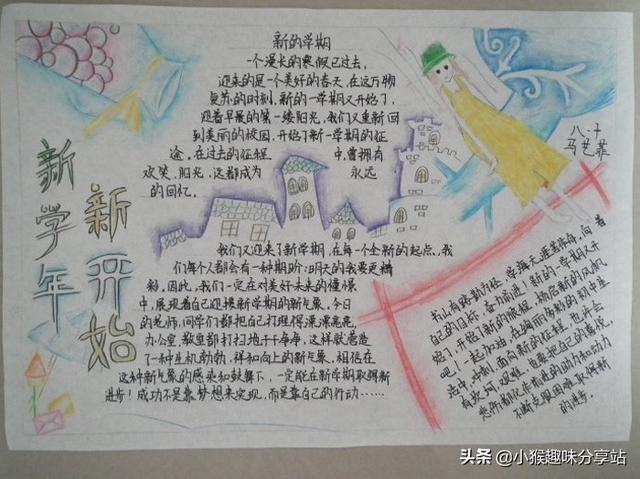 新的学期
一个漫长的寒假已过去,
迎来的是一个美好的春天,在这万物
复苏的时刻,新的一学期又开始了,
迎着早晨的第一缕阳光,我们又重新回
到美丽的校园,开始了新一学期的征
途,在过去的征程中,曾拥有
欢笑、阳光,这都成为永远
的回忆。
八·十
马艺菲
新学年
新开始
我们又迎来了新学期,在每一个全新的起点,我
们每个人都会有一种期盼:明天的我要更精
彩。因此,我们一定在对美好未来的憧憬
中,展现着自己迎接新学期的新气象,今日
的老师、同学们都把自己打理得漂漂亮亮,
办公室、教室都打扫地干干净净,这样就意造
了一种生机勃勃,祥和向上的新气象,相信在
这种新气象的感染和鼓舞下,一定能在新学期取得新
进步!成功不是靠梦想来实现,而是靠自己的行动……
书山有路勤为径,学海无涯苦作舟,向着
自己的目标,奋力前进!新的一学期又开
始了,开始了新的旅程,扬启新的风帆
吧!一起加油,在绚丽多彩的初中生
活中,冲刺,面向新的征程,也许会
有坎坷、艰难,
不断克服困难取得新
的进步。
头条 @小猴趣味分享站